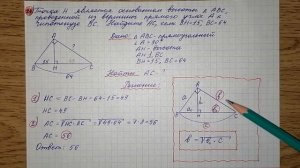 Точка H является основанием высоты в △ABC,
проведенной из вершины прямого угла A к
гипотенузе BC. Найдите AC, если BH=15; BC=64
Дано: △ABC-прямоугольный
∠A=90°
AH-высота
AH⊥BC
BH=15, BC=64
Найти: AC-?
Решение:
① HC=BC-BH=64-15=49
HC=49
② AC=√HC·BC=√49·64=7·8=56
AC=56
Ответ: 56